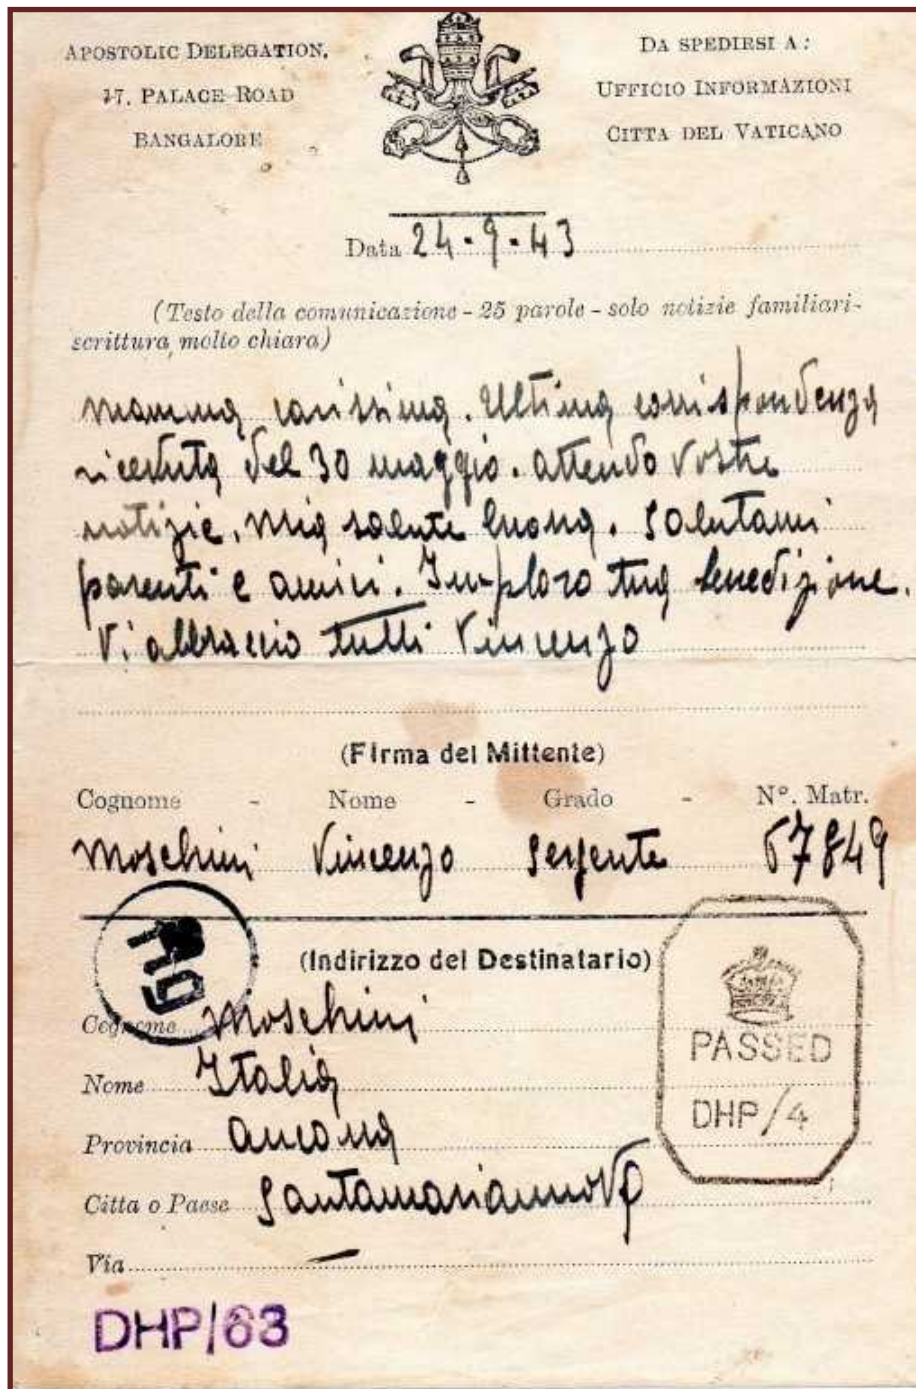 APOSTOLIC DELEGATION,
17, PALACE ROAD
BANGALORE
DA SPEDIRSI A :
UFFICIO INFORMAZIONI
CITTA DEL VATICANO
Data 24-9-43
(Testo della comunicazione - 25 parole - solo notizie familiari-
scrittura molto chiara)
Mamma carissima. Ultima corrispondenza
ricevuta del 30 maggio. Attendo vostre
notizie. Mia salute buona. Salutami
parenti e amici. Imploro tua benedizione.
Vi abbraccio tutti Vincenzo
(Firma del Mittente)
Cognome - Nome - Grado - N°. Matr.
Moschini Vincenzo Sergente 67849
(Indirizzo del Destinatario)
Cognome Moschini
Nome Italia
Provincia Ancona
Citta o Paese Santamariannova
Via —
PASSED
DHP/4
DHP/63